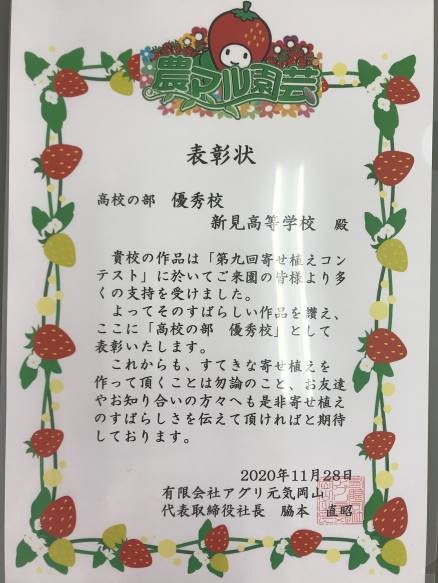 農マル園芸
表彰状
高校の部　優秀校
新見高等学校　殿
貴校の作品は「第九回寄せ植えコン
テスト」に於いてご来園の皆様より多
くの支持を受けました。
よってそのすばらしい作品を讃え、
ここに「高校の部　優秀校」として
表彰いたします。
これからも、すてきな寄せ植えを
作って頂くことは勿論のこと、お友達
やお知り合いの方々へも是非寄せ植え
のすばらしさを伝えて頂ければと期待
しております。
2020年11月28日
有限会社アグリ元気岡山
代表取締役社長　脇本　直昭